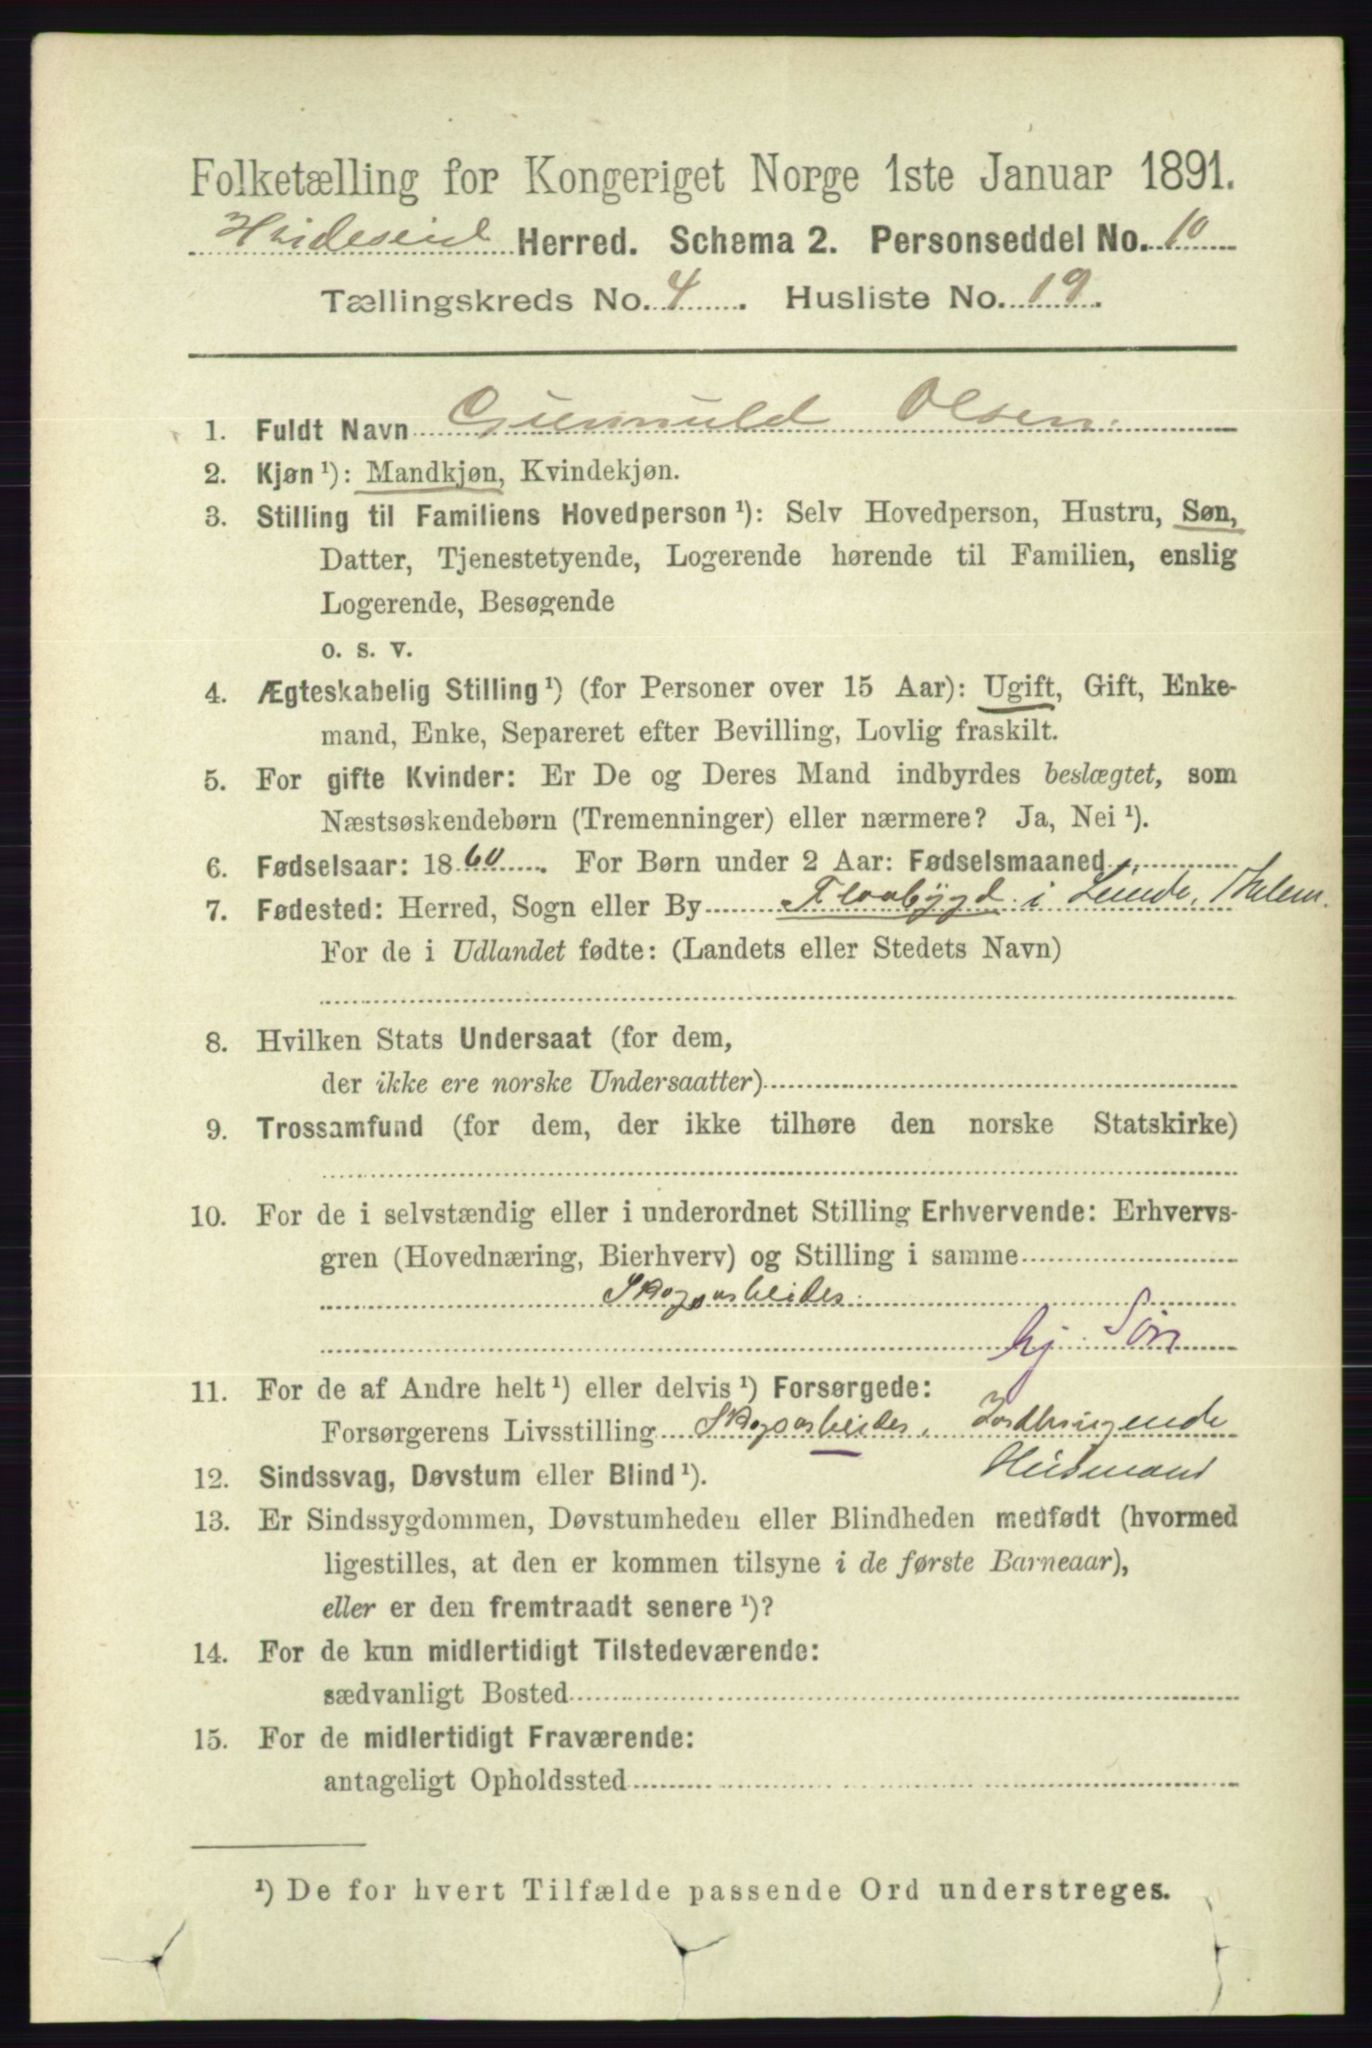 Folketælling for Kongeriget Norge 1ste Januar 1891.
Hvideseid Herred. Schema 2. Personseddel No. 10
Tællingskreds No. 4. Husliste No. 19.
1. Fuldt Navn Gunnuld Olsen.
2. Kjøn ¹): Mandkjøn, Kvindekjøn.
3. Stilling til Familiens Hovedperson ¹): Selv Hovedperson, Hustru, Søn,
Datter, Tjenestetyende, Logerende hørende til Familien, enslig
Logerende, Besøgende
o. s. v.
4. Ægteskabelig Stilling ¹) (for Personer over 15 Aar): Ugift, Gift, Enke-
mand, Enke, Separeret efter Bevilling, Lovlig fraskilt.
5. For gifte Kvinder: Er De og Deres Mand indbyrdes beslægtet, som
Næstsøskendebørn (Tremenninger) eller nærmere? Ja, Nei ¹).
6. Fødselsaar: 1860. For Børn under 2 Aar: Fødselsmaaned
7. Fødested: Herred, Sogn eller By Flaabygd i Lunde, Thelem.
For de i Udlandet fødte: (Landets eller Stedets Navn)
8. Hvilken Stats Undersaat (for dem,
der ikke ere norske Undersaatter)
9. Trossamfund (for dem, der ikke tilhøre den norske Statskirke)
10. For de i selvstændig eller i underordnet Stilling Erhvervende: Erhvervs-
gren (Hovednæring, Bierhverv) og Stilling i samme
Skogsarbeider.
hj. Søn
11. For de af Andre helt ¹) eller delvis ¹) Forsørgede:
Forsørgerens Livsstilling Skogsarbeider, Jordbrugende
Husmand
12. Sindssvag, Døvstum eller Blind ¹).
13. Er Sindssygdommen, Døvstumheden eller Blindheden medfødt (hvormed
ligestilles, at den er kommen tilsyne i de første Barneaar),
eller er den fremtraadt senere ¹)?
14. For de kun midlertidigt Tilstedeværende:
sædvanligt Bosted
15. For de midlertidigt Fraværende:
antageligt Opholdssted
¹) De for hvert Tilfælde passende Ord understreges.